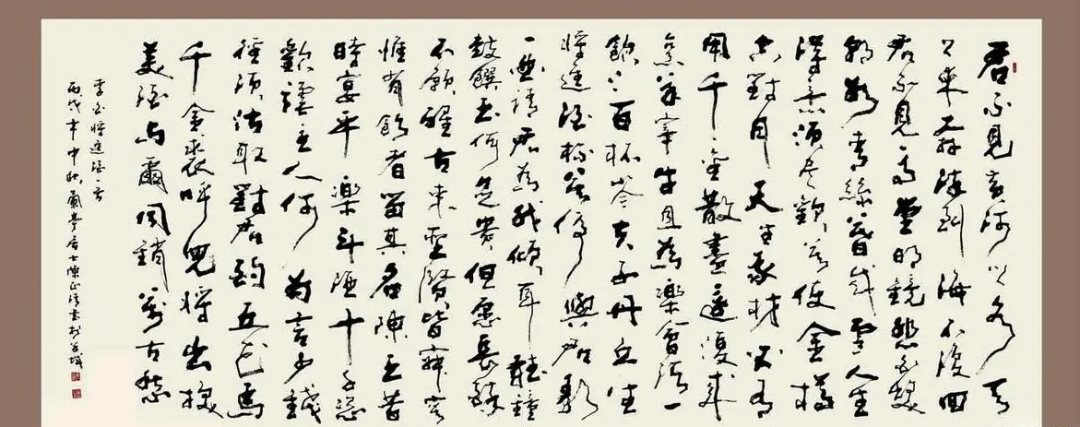 君不見黃河之水天
上来奔流到海不復回
君不見高堂明鏡悲白髮
朝如青絲暮成雪人生
得意須盡歡莫使金樽
空對月天生我材必有
用千金散盡還復来
烹羊宰牛且為樂會須一
飲三百杯岑夫子丹丘生
將進酒杯莫停與君歌
一曲請君為我傾耳聽鐘
鼓饌玉何足貴但愿長醉
不願醒古来聖賢皆寂寞
惟有飲者留其名陳王昔
時宴平樂斗酒十千恣
歡謔主人何為言少錢
徑須沽取對君酌五花馬
千金裘呼兒將出換
美酒與爾同銷萬古愁
李白將進酒一首
丙戌年中秋